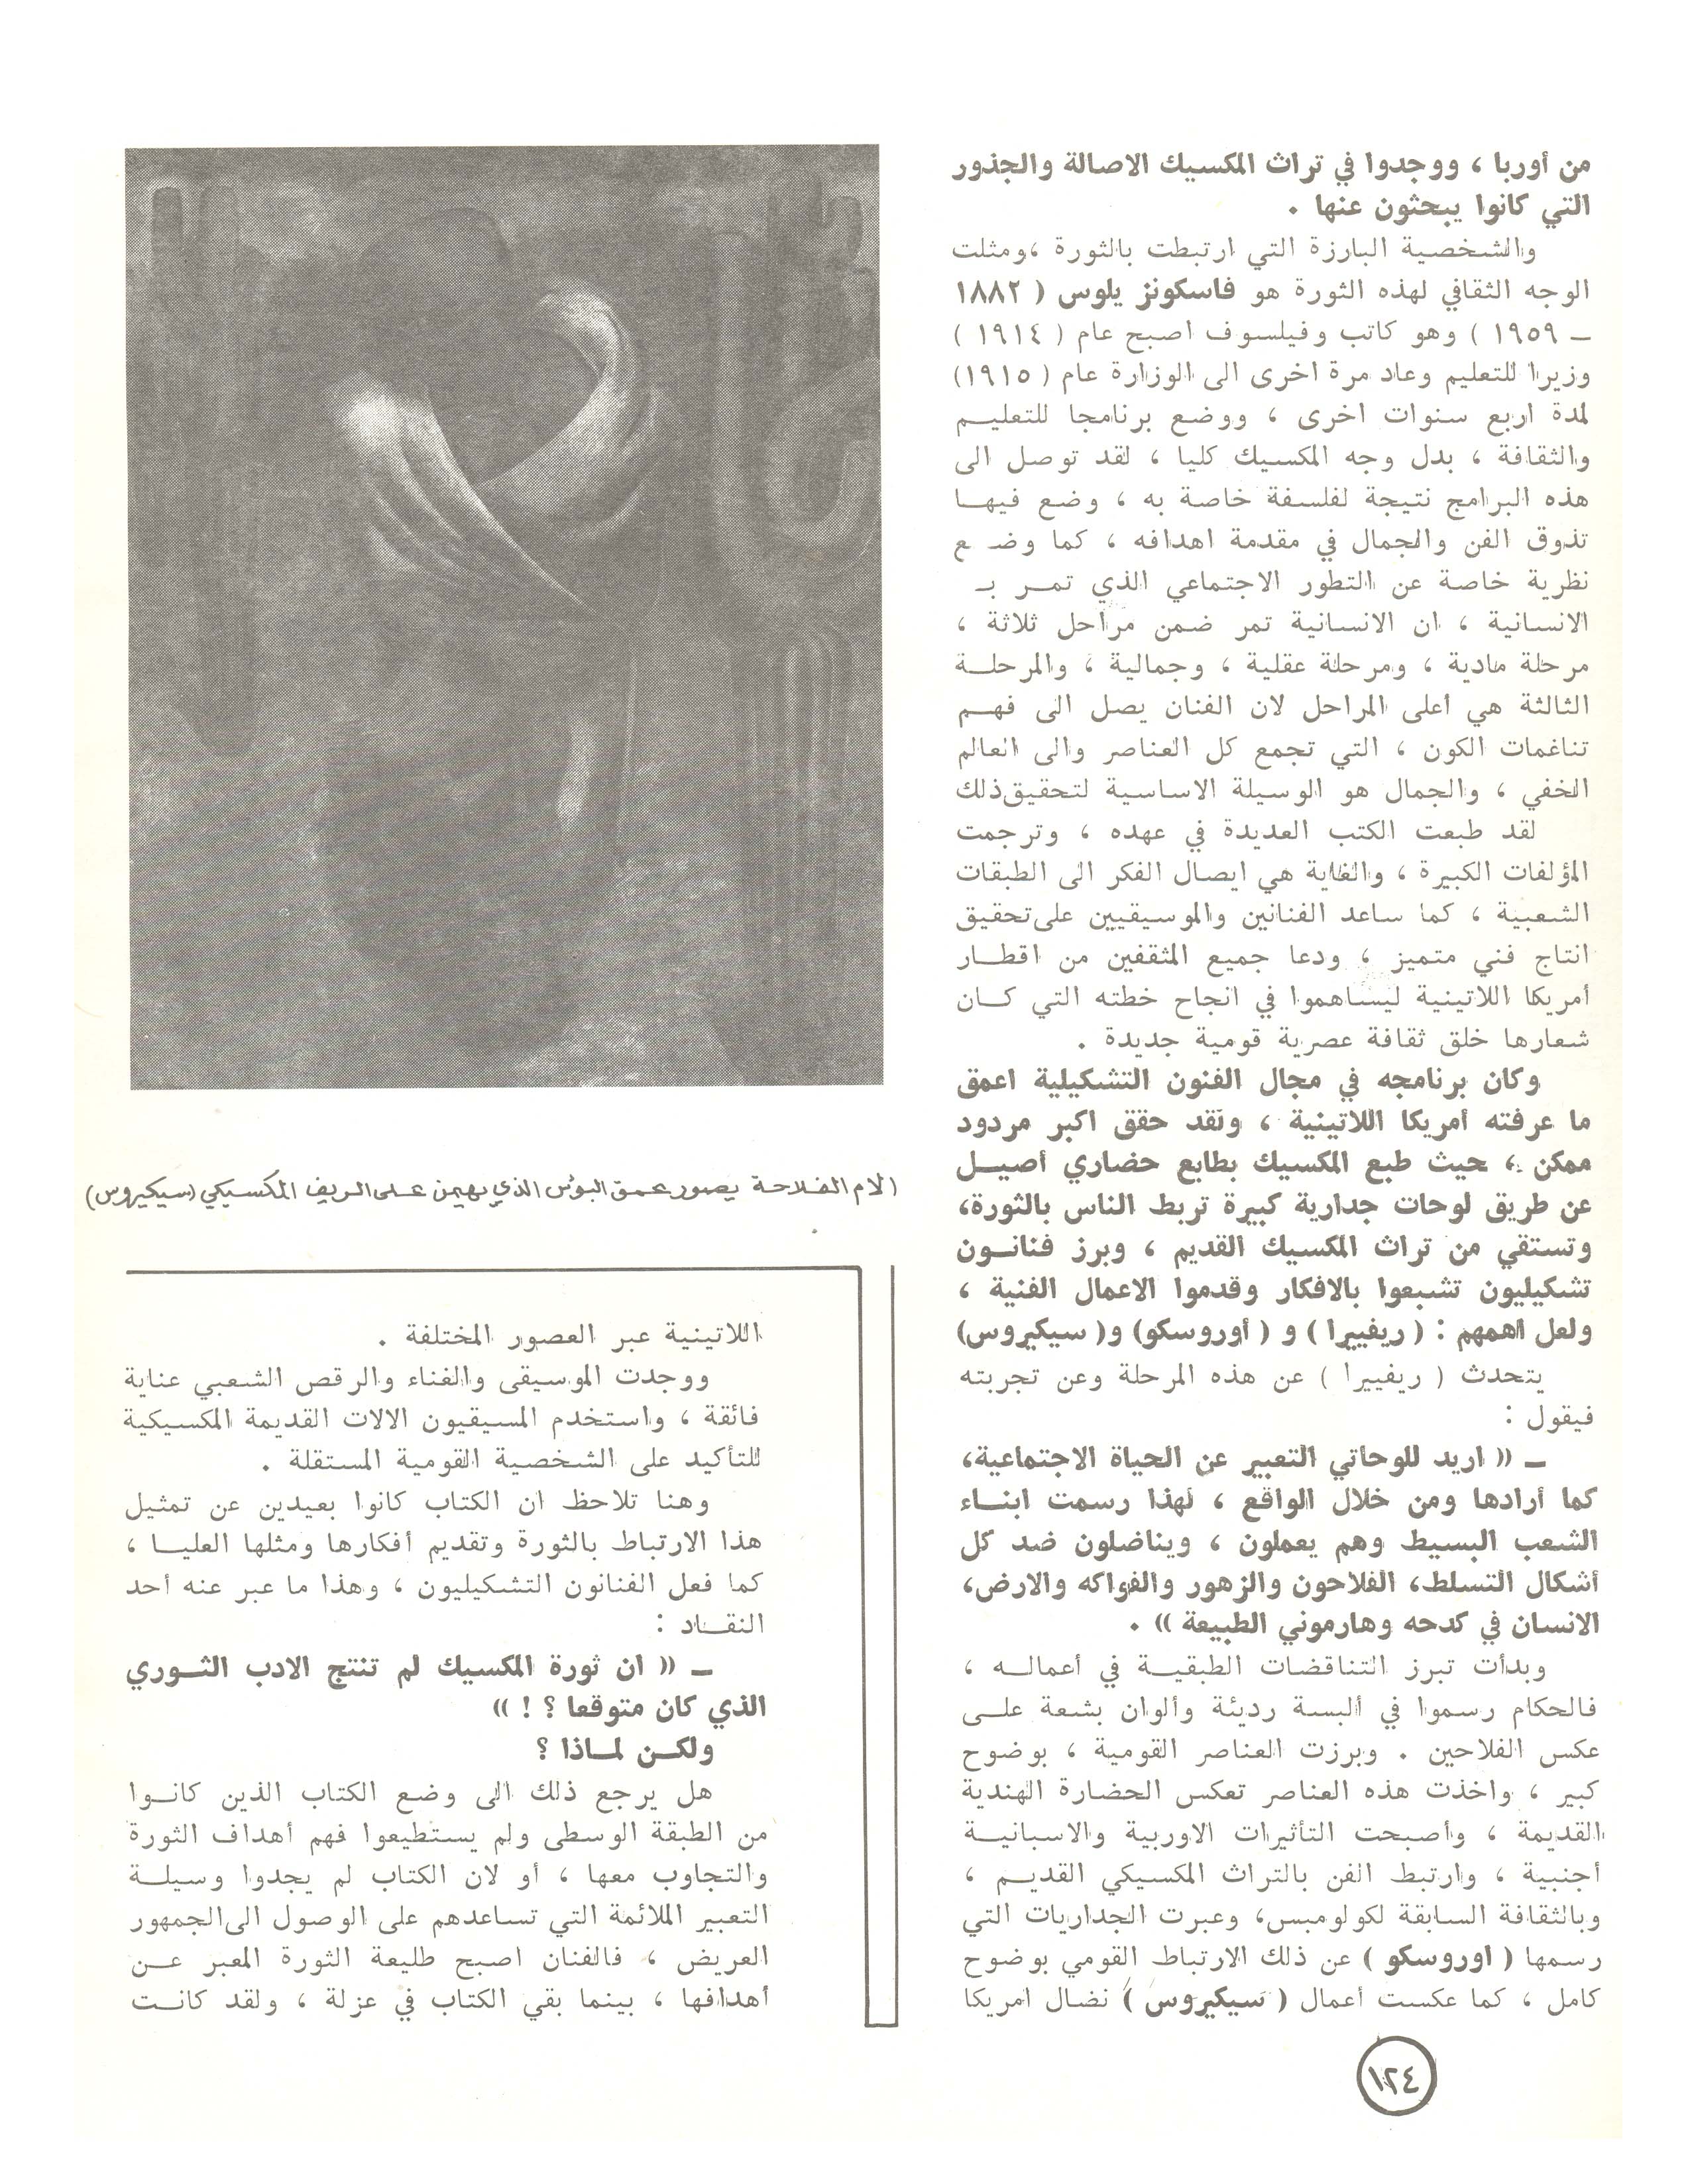 من أوربا ، ووجدوا في تراث المكسيك الاصالة والجذور
التي كانوا يبحثون عنها .
والشخصية البارزة التي ارتبطت بالثورة ،ومثلت
الوجه الثقافي لهذه الثورة هو فاسكونز يلوس ( ١٨٨٢
ــ ١٩٥٩ ) وهو كاتب وفيلسوف اصبح عام ( ١٩١٤ )
وزيرا للتعليم وعاد مرة اخرى الى الوزارة عام ( ١٩١٥)
لمدة اربع سنوات اخرى ، ووضع برنامجا للتعليم
والثقافة ، بدل وجه المكسيك كليا ، لقد توصل الى
هذه البرامج نتيجة لفلسفة خاصة به ، وضع فيهـا
تذوق الفن والجمال في مقدمة اهدافه ، كما وضـ ع
نظرية خاصة عن التطور الاجتماعي الذي تمـر بـ
الانسانية ، ان الانسانية تمر ضمن مراحل ثلاثة ،
مرحلة مادية ، ومرحلة عقلية ، وجمالية ، والمرحلـة
الثالثة هي أعلى المراحل لان الفنان يصل الى فهـم
تناغمات الكون ، التي تجمع كل العناصر والى العالم
الخفي ، والجمال هو الوسيلة الاساسية لتحقيق ذلك
لقد طبعت الكتب العديدة في عهده ، وترجمت
المؤلفات الكبيرة ، والغاية هي ايصال الفكر الى الطبقات
الشعبية ، كما ساعد الفنانين والموسيقيين على تحقيق
انتاج فني متميز ، ودعا جميع المثقفين من اقطـار
أمريكا اللاتينية ليساهموا في انجاح خطته التي كـان
شعارها خلق ثقافة عصرية قومية جديدة .
وكان برنامجه في مجال الفنون التشكيلية اعمق
ما عرفته أمريكا اللاتينية ، ولقد حقق اكبر مردود
ممكن ، حيث طبع المكسيك بطابع حضاري أصيـل
عن طريق لوحات جدارية كبيرة تربط الناس بالثورة،
وتستقي من تراث المكسيك القديم ، وبرز فنانـون
تشكيليون تشبعوا بالافكار وقدموا الاعمال الفنية ،
ولعل اهمهم : ( ريفييرا ) و ( أوروسكو) و( سيكيروس)
يتحدث ( ريفييرا ) عن هذه المرحلة وعن تجربته
فيقول :
ــ (( اريد للوحاتي التعبير عن الحياة الاجتماعية،
كما أرادها ومن خلال الواقع ، لهذا رسمت ابنـاء
الشعب البسيط وهم يعملون ، ويناضلون ضد كل
أشكال التسلط، الفلاحون والزهور والفواكه والارض،
الانسان في كدحه وهارموني الطبيعة )) .
وبدأت تبرز التناقضات الطبقيـة في أعمالـه ،
فالحكام رسموا في ألبسة رديئة وألوان بشعة علـى
عكس الفلاحين . وبرزت العناصر القومية ، بوضوح
كبير ، واخذت هذه العناصر تعكس الحضارة الهندية
القديمة ، وأصبحت التأثيرات الاوربية والاسبانيـة
أجنبية ، وارتبط الفن بالتراث المكسيكي القديـم ،
وبالثقافة السابقة لكولومبس، وعبرت الجداريات التي
رسمها ( اوروسكو ) عن ذلك الارتباط القومي بوضوح
كامل ، كما عكست أعمال ( سيكيروس ) نضال امريكا
الام الفلاحة يصور عمق البؤس الذي يهيمن على الريف المكسيكي (سيكيروس)
اللاتينية عبر العصور المختلفة .
ووجدت الموسيقى والغناء والرقص الشعبي عناية
فائقة ، واستخدم المسيقيون الالات القديمة المكسيكية
للتأكيد على الشخصية القومية المستقلة .
وهنا تلاحظ ان الكتاب كانوا بعيدين عن تمثيل
هذا الارتباط بالثورة وتقديم أفكارها ومثلها العليـا ،
كما فعل الفنانون التشكيليون ، وهذا ما عبر عنه أحد
النقـاد :
ــ (( ان ثورة المكسيك لم تنتج الادب الثـوري
الذي كان متوقعا ؟ ! ))
ولكـن لمـاذا ؟
هل يرجع ذلك الى وضع الكتاب الذين كانـوا
من الطبقة الوسطى ولم يستطيعوا فهم أهداف الثورة
والتجاوب معها ، أو لان الكتاب لم يجدوا وسيلـة
التعبير الملائمة التي تساعدهم على الوصول الى الجمهور
العريض ، فالفنان اصبح طليعة الثورة المعبر عـن
أهدافها ، بينما بقي الكتاب في عزلة ، ولقد كانـت
١٢٤